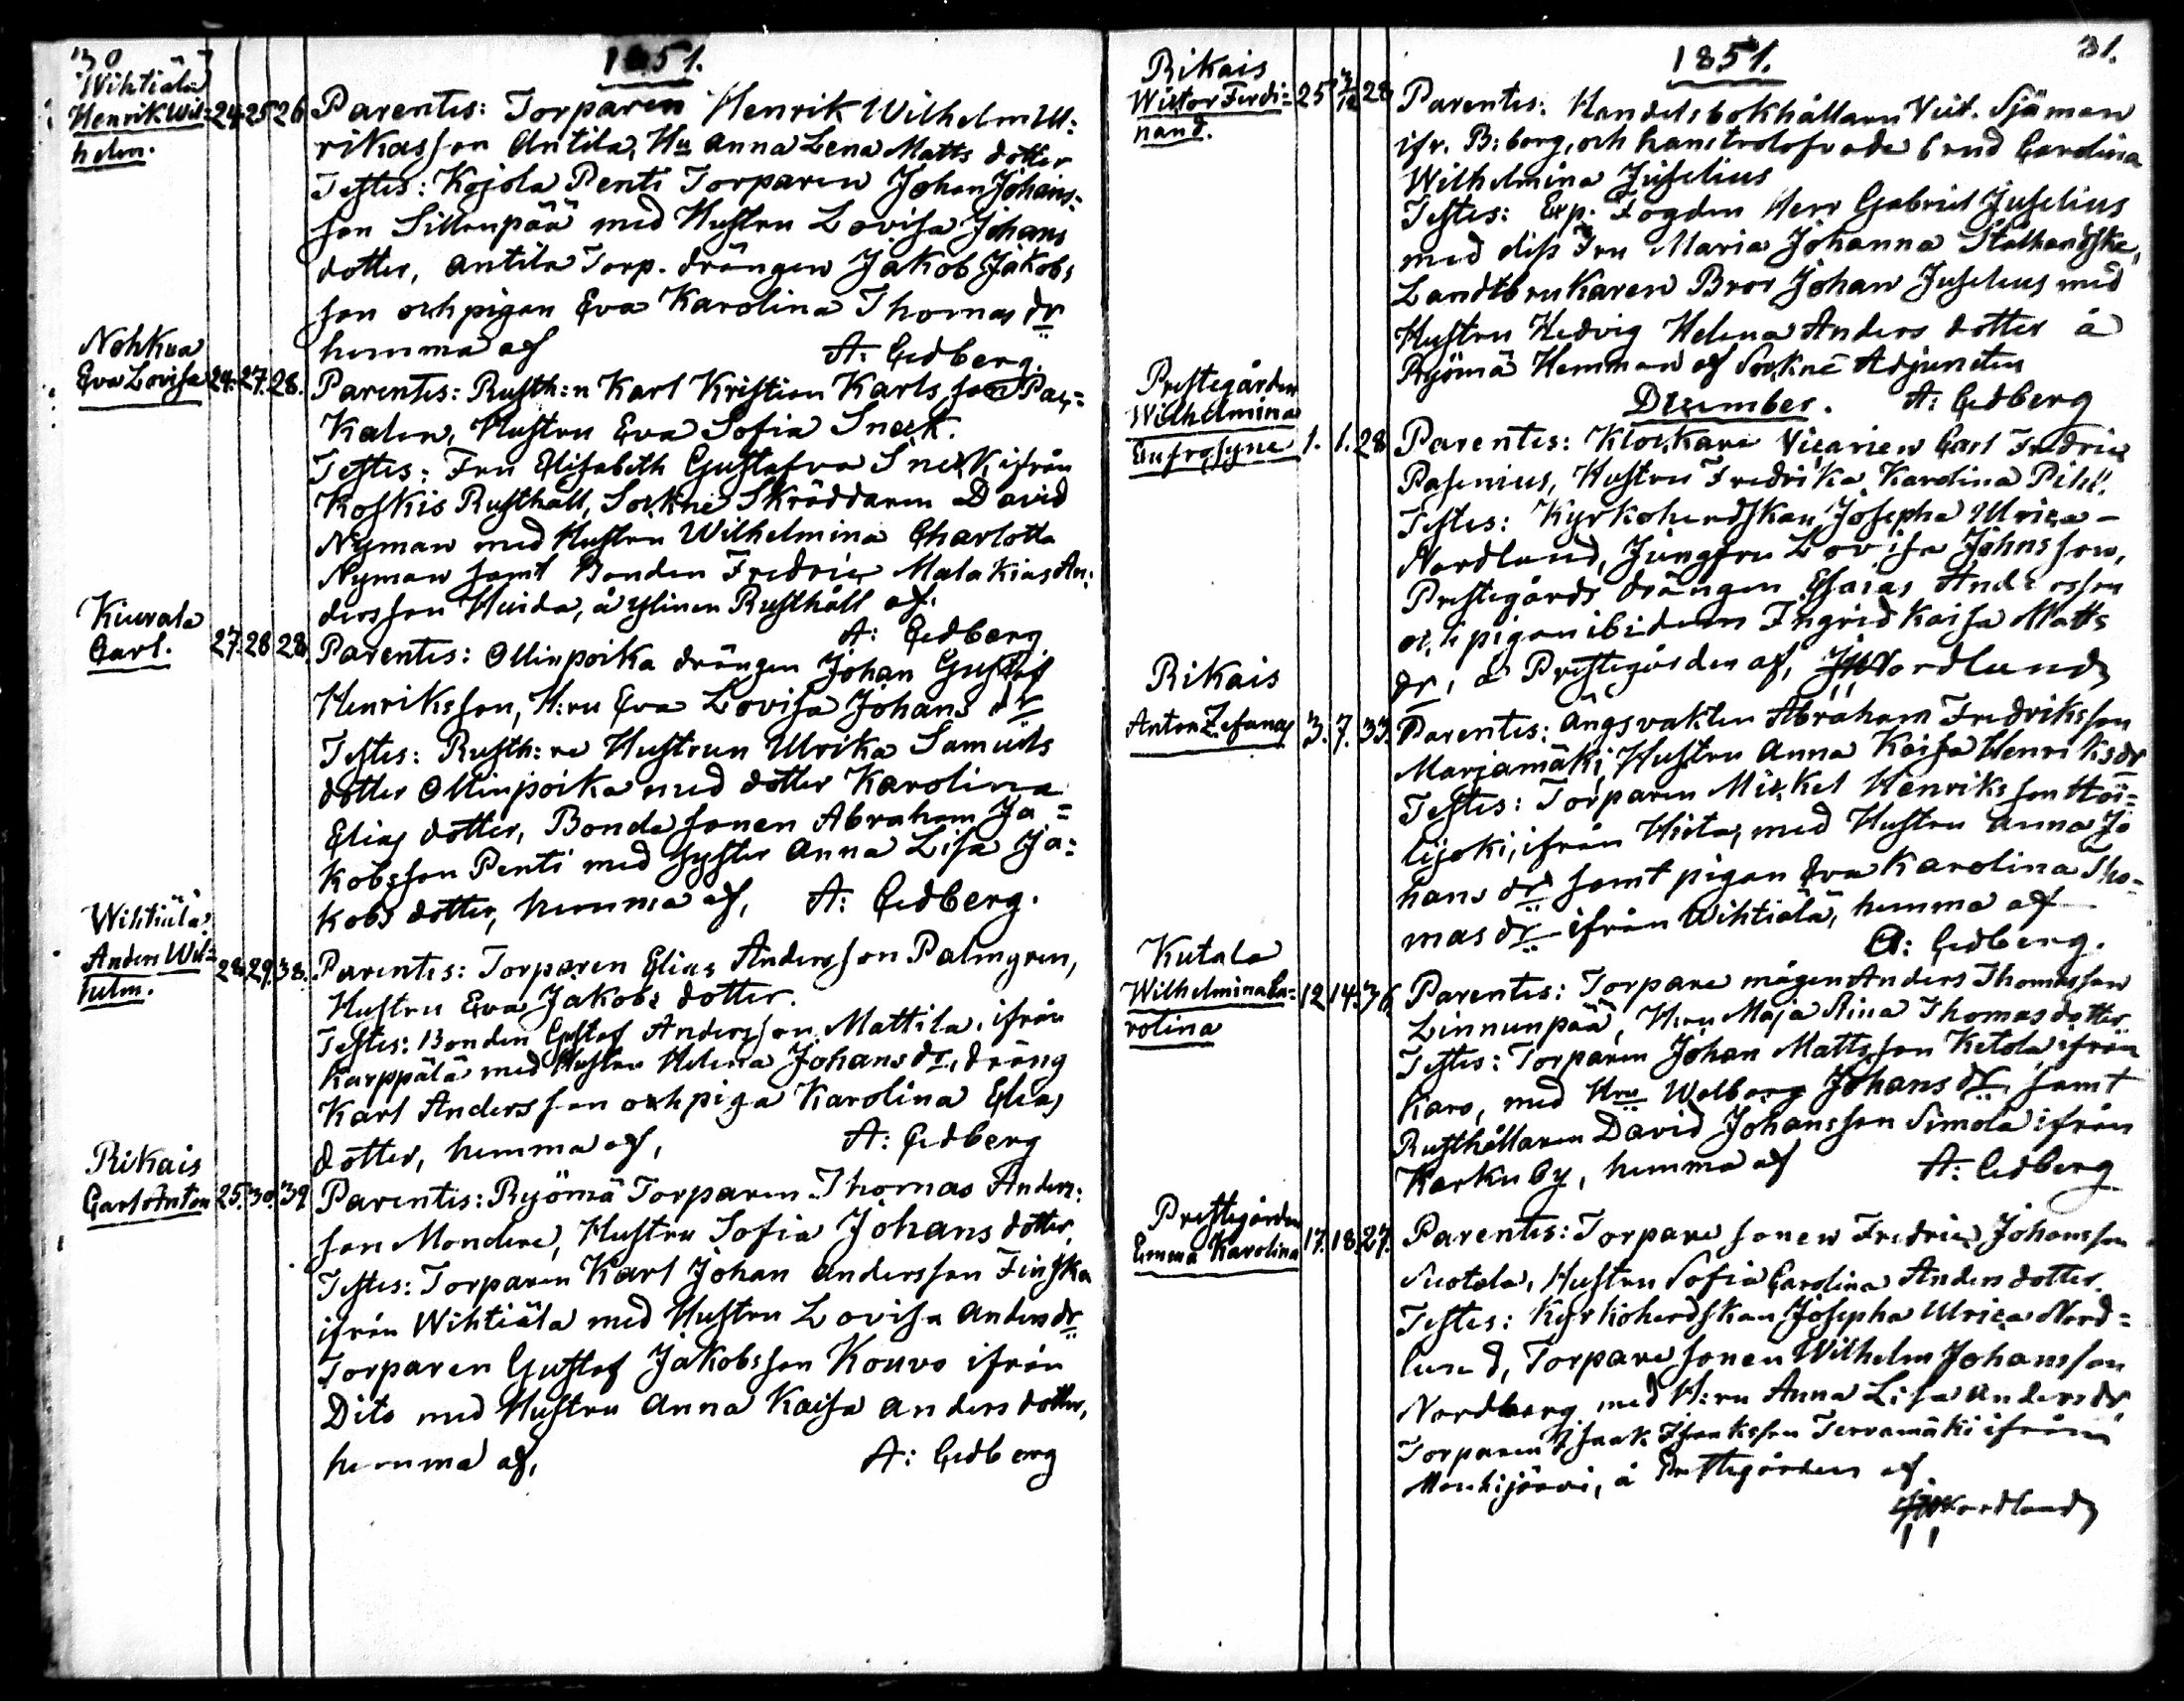 30
1851.
Wihtiälä
Henrik Wil=
helm.
24. 25 26
Parentes: Torparen Henrik Wilhelm Ul=
rikasson Antila, Hu Anna Lena Matts dotter
Testes: Kojola Penti Torparen Johan Johans=
son Sillenpää med Hustru Lovisa Johans
dotter, Antila Torp. drängen Jakob Jakobs
son och pigan Eva Karolina Thomas dr
hemma af A: Cedberg.
Nohkua
Eva Lovisa
24. 27. 28.
Parentes: Rusth:n Karl Kristian Karls son
Kalen, Hustru Eva Sofia Sneck.
Testes: Fru Elisabeth Gustafva Sneck, ifrån
Koskis Rusthåll, Sockne Skräddaren David
Nyman med Hustru Wilhelmina Charlotta
Nyman samt Bonden Fredric Malakias An:
dersson Huida, å Ylinen Rusthåll af.
A: Cedberg
Kiuvala
Carl.
27. 28 28.
Parentes: Ollinpoika drängen Johan Gustaf
Henriksson, H:ru Eva Lovisa Johans dr
Testes: Rusth:re Hustrun Ulrika Samuels
dotter Ollinpoika med dotter Karolina
Elias dotter, Bonde sonen Abraham Ja=
kobsson Penti med syster Anna Lisa Ja=
kobs dotter, hemma af, A: Cedberg.
Wihtiälä
Anders Wil=
helm.
28. 29. 38.
Parentes: Torparen Elias Andersson Palmgren,
Hustru Eva Jakobs dotter.
Testes: Bonden Gustaf Andersson Mattila, ifrån
Karppälä med Hustru Helena Johans dr, dräng
Karl Andersson och piga Karolina Elias
dotter, hemma af, A: Cedberg
Rikais
Carl Anton
25. 30. 39
Parentes: Ryömä Torparen Thomas Anders:
son Mondere, Hustru Sofia Johans dotter,
Testes: Torparen Karl Johan Andersson Finska
ifrån Wihtiälä med Hustru Lovisa Anders dr
Torparen Gustaf Jakobsson Kouvo ifrån
Dito med Hustru Anna Kaisa Anders dotter,
hemma af, A: Cedberg
31.
1851.
Rikais
Wictor Ferdi=
nand.
25 3/12 28
Parentes: Handelsbokhållaren Vict. Sjöman
ifr. B:borg, och hans trolofvade brud Carolina
Wilhelmina Juselius
Testes: Exp. Fogden Herr Gabriel Juselius
med dess Fru Maria Johanna Stålhandske,
Landtbrukaren Bror Johan Juselius med
Hustru Hedvig Helena Anders dotter å
Ryömä Hemman af Sockne Adjuncten
December. A: Cedberg
Prestegården
Wilhelmina
Eufrosyne
1. 1. 28
Parentes: Klockare Vicarien Carl Fredric
Pasenius, Hustru Fredrika Karolina Pihl.
Testes: Kyrkoherdskan Josepha Ulrica
Nordlund, Jungfru Lovisa Johnsson,
Prestegårds drängen Esaias Andersson
och pigan ibidem Ingrid Kaisa Matts
dr, å Prestegården af, Nordlund
Rikais
Anton Zefanas
3. 7. 33.
Parentes: Ängsvakten Abraham Fredriksson
Marjamäki, Hustru Anna Kaisa Henriks dr
Testes: Torparen Mickel Henriksson Höi=
lijoki, ifrån Hiota, med Hustru Anna Jo
hans dr samt pigan Eva Karolina Tho=
mas dr ifrån Wihtiälä, hemma af
A: Cedberg.
Kutala
Wilhelmina Ca=
rolina
12 14. 36
Parentes: Torpare mågen Anders Thomasson
Linnunpää, H:ru Maja Stina Thomas dotter
Testes: Torparen Johan Mattsson Ketola ifrån
Karo, med Hru Walborg Johans dr, samt
Rusthållaren David Johansson Simola ifrån
Karkuby, hemma af A: Cedberg
Prestegården
Emma Karolina
17. 18. 27.
Parentes: Torpare sonen Fredric Johansson
Suotala, Hustru Sofia Carolina Anders dotter.
Testes: Kyrkoherdskan Josepha Ulrica Nord=
lund, Torpare sonen Wilhelm Johansson
Nordberg med H:ru Anna Lisa Anders dr
Torparen Isaak Isaksson Tervamäki ifrån
Mouhijärvi, å Prestegården af.
Nordlund